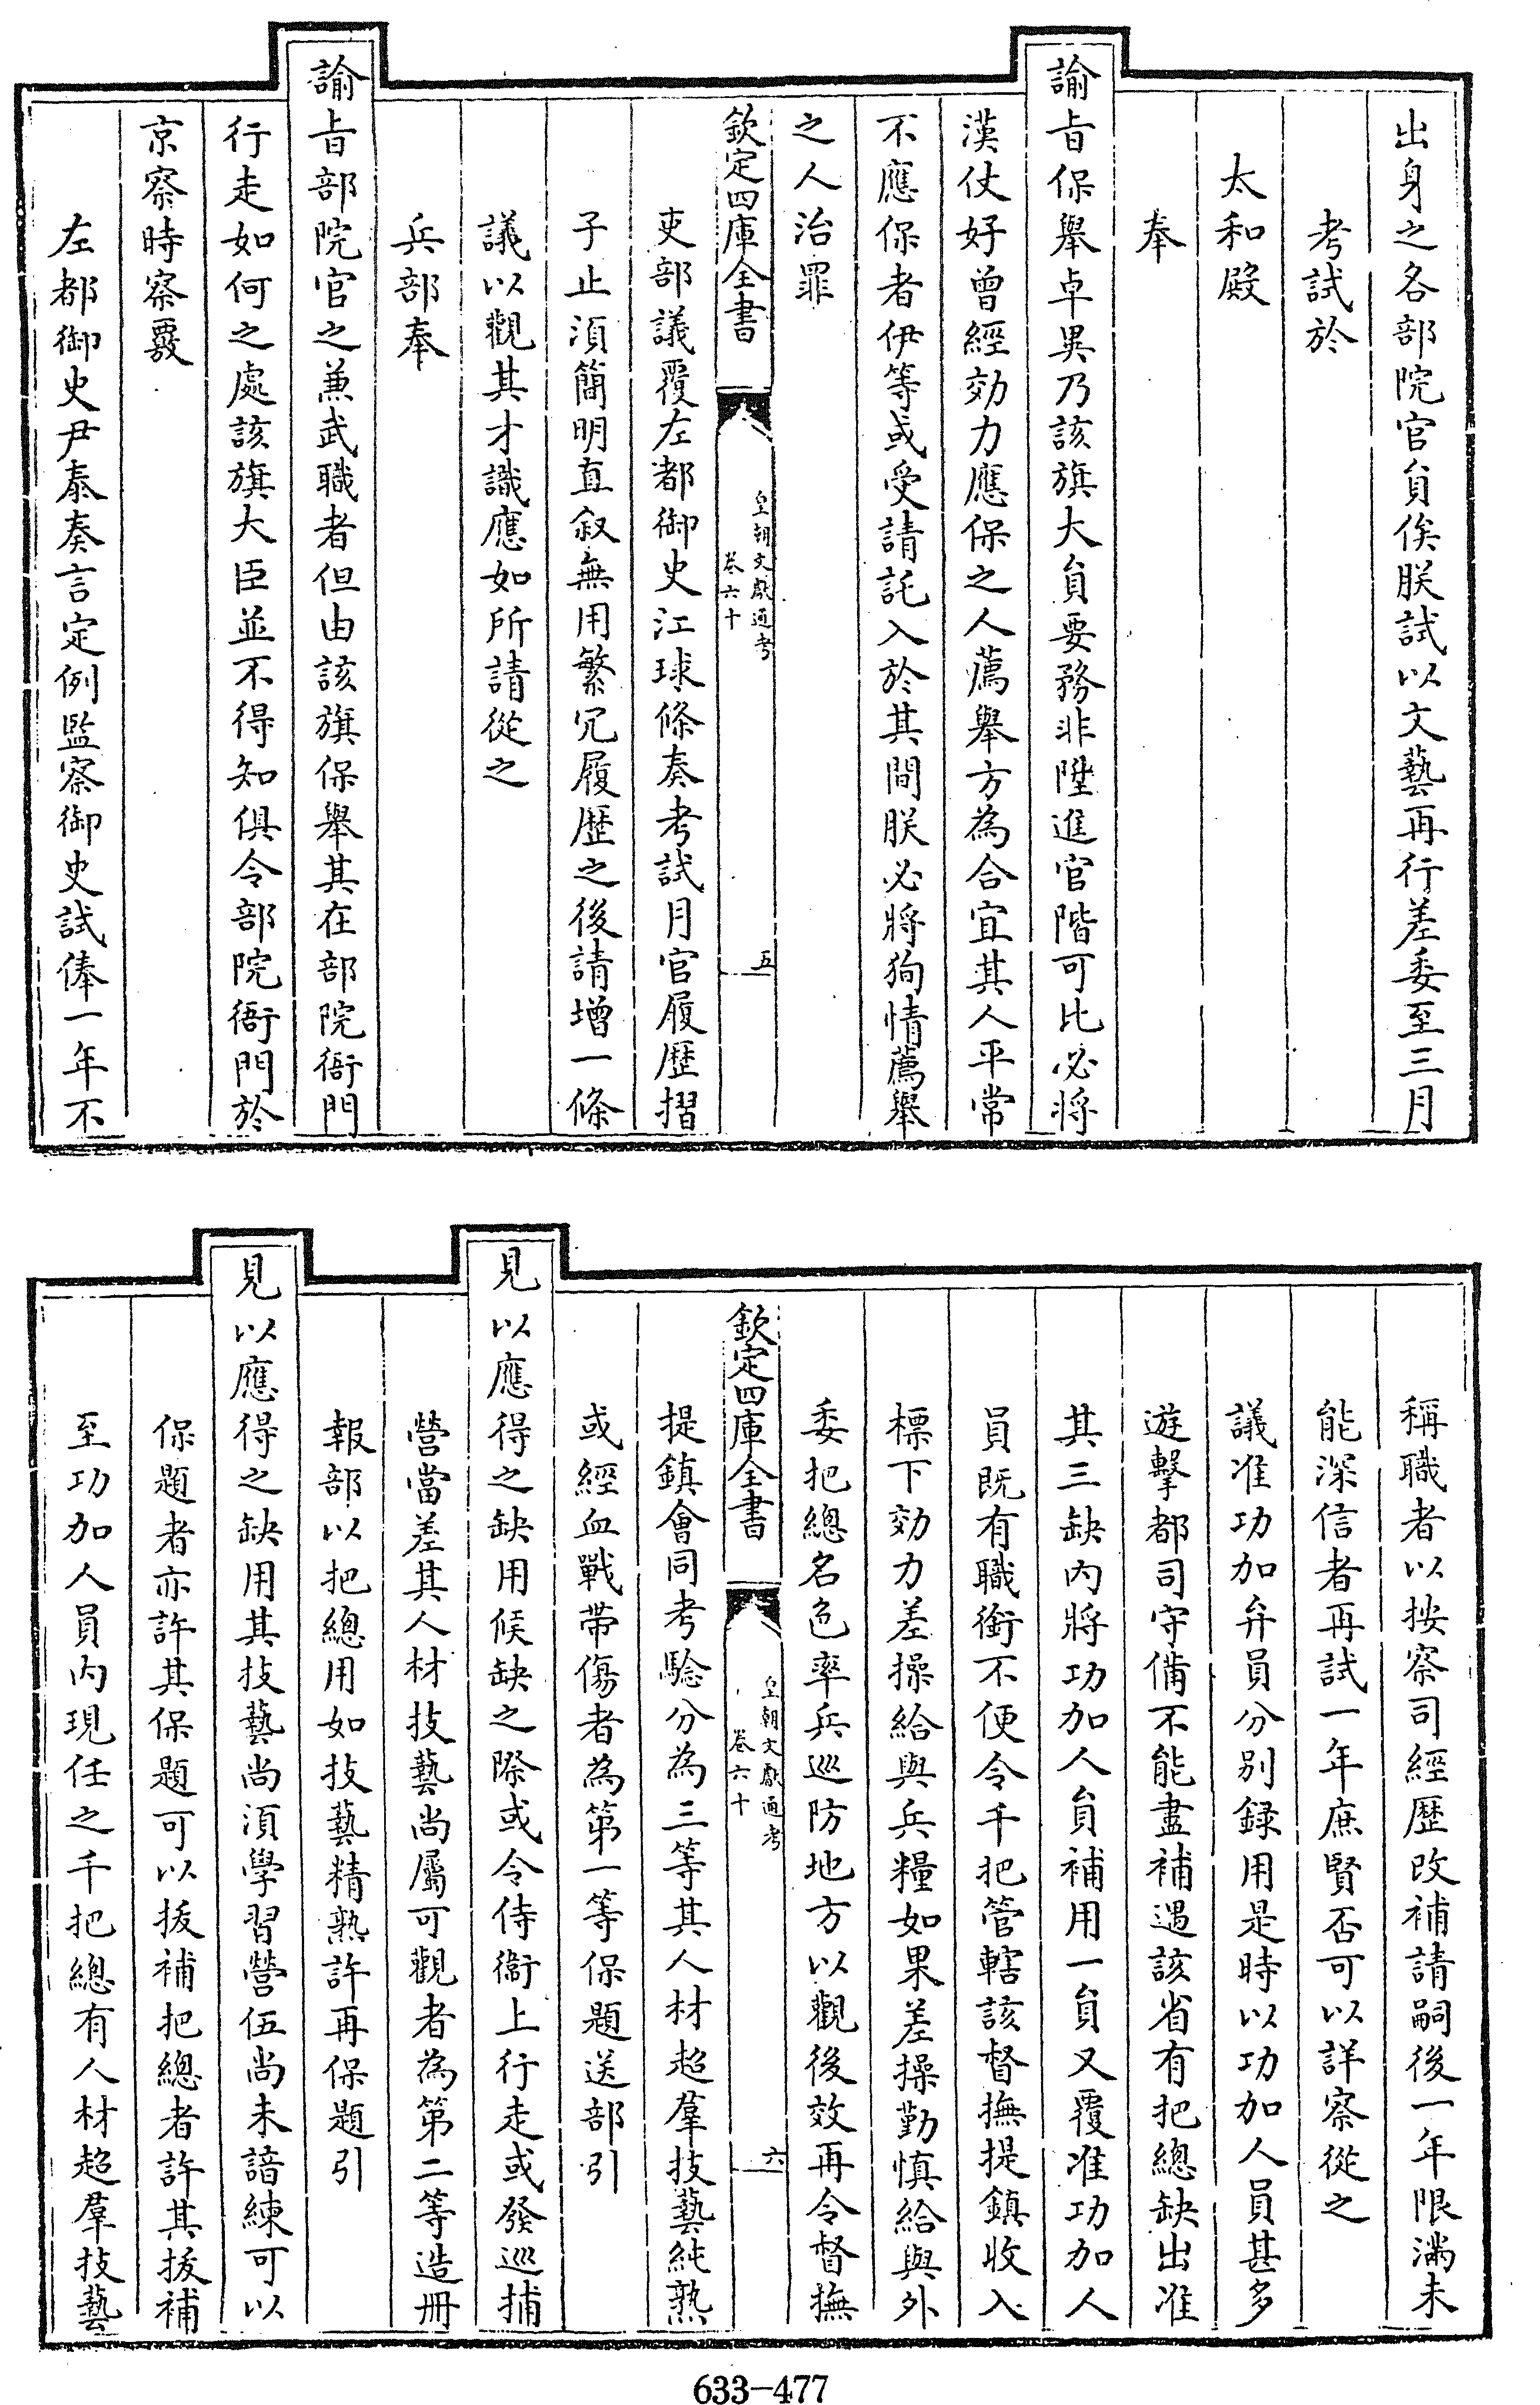 出身之各部院官員俟朕試以文藝再行差委至三月
考試於
太和殿
奉
諭旨保舉卓異乃該旗大員要務非陞進官階可比必將
漢仗好曾經効力應保之人薦舉方為合宜其人平常
不應保者伊等或受請託入於其間朕必將狥情薦舉
之人治罪
欽定四庫全書
皇朝文獻通考
卷六十
五
吏部議覆左都御史江球條奏考試月官履歷摺
子止須簡明直叙無用繁冗履歷之後請增一條
議以觀其才識應如所請從之
兵部奉
諭旨部院官之兼武職者但由該旗保舉其在部院衙門
行走如何之處該旗大臣並不得知俱令部院衙門於
京察時察覈
左都御史尹泰奏言定例監察御史試俸一年不
稱職者以按察司經歷改補請嗣後一年限滿未
能深信者再試一年庶賢否可以詳察從之
議准功加弁員分別録用是時以功加人員甚多
遊擊都司守備不能盡補遇該省有把總缺出准
其三缺內將功加人員補用一員又覆准功加人
員既有職銜不便令千把管轄該督撫提鎮收入
標下効力差操給與兵糧如果差操勤慎給與外
委把總名色率兵巡防地方以觀後效再令督撫
欽定四庫全書
皇朝文獻通考
卷六十
六
提鎮會同考驗分為三等其人材超羣技藝純熟
或經血戰帶傷者為第一等保題送部引
見以應得之缺用候缺之際或令侍衛上行走或發巡捕
營當差其人材技藝尚屬可觀者為第二等造冊
報部以把總用如技藝精熟許再保題引
見以應得之缺用其技藝尚須學習營伍尚未諳練可以
保題者亦許其保題可以拔補把總者許其拔補
至功加人員內現任之千把總有人材超羣技藝
633-477